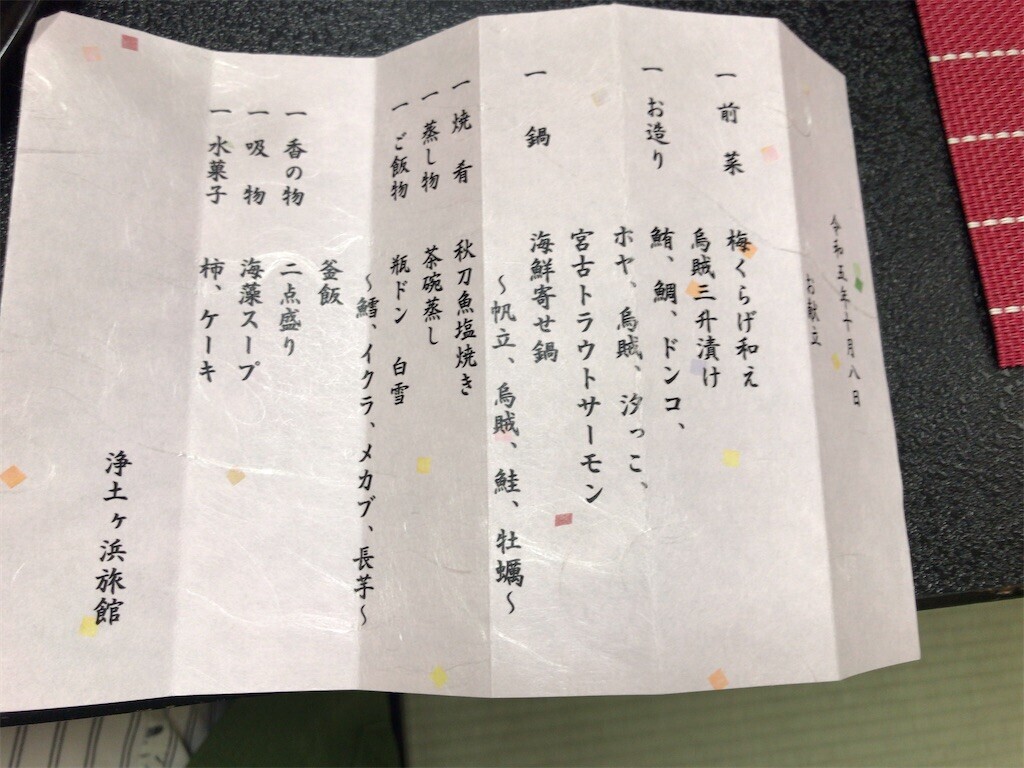 令和五年十月八日
お献立
一 前菜 梅くらげ和え
烏賊三升漬け
一 お造り 鮪、鯛、ドンコ、
ホヤ、烏賊、汐っこ、
宮古トラウトサーモン
一 鍋 海鮮寄せ鍋
～帆立、烏賊、鮭、牡蠣～
一 焼肴 秋刀魚塩焼き
一 蒸し物 茶碗蒸し
一 ご飯物 瓶ドン 白雪
～鱈、イクラ、メカブ、長芋～
釜飯
一 香の物 二点盛り
一 吸物 海藻スープ
一 水菓子 柿、ケーキ
浄土ヶ浜旅館